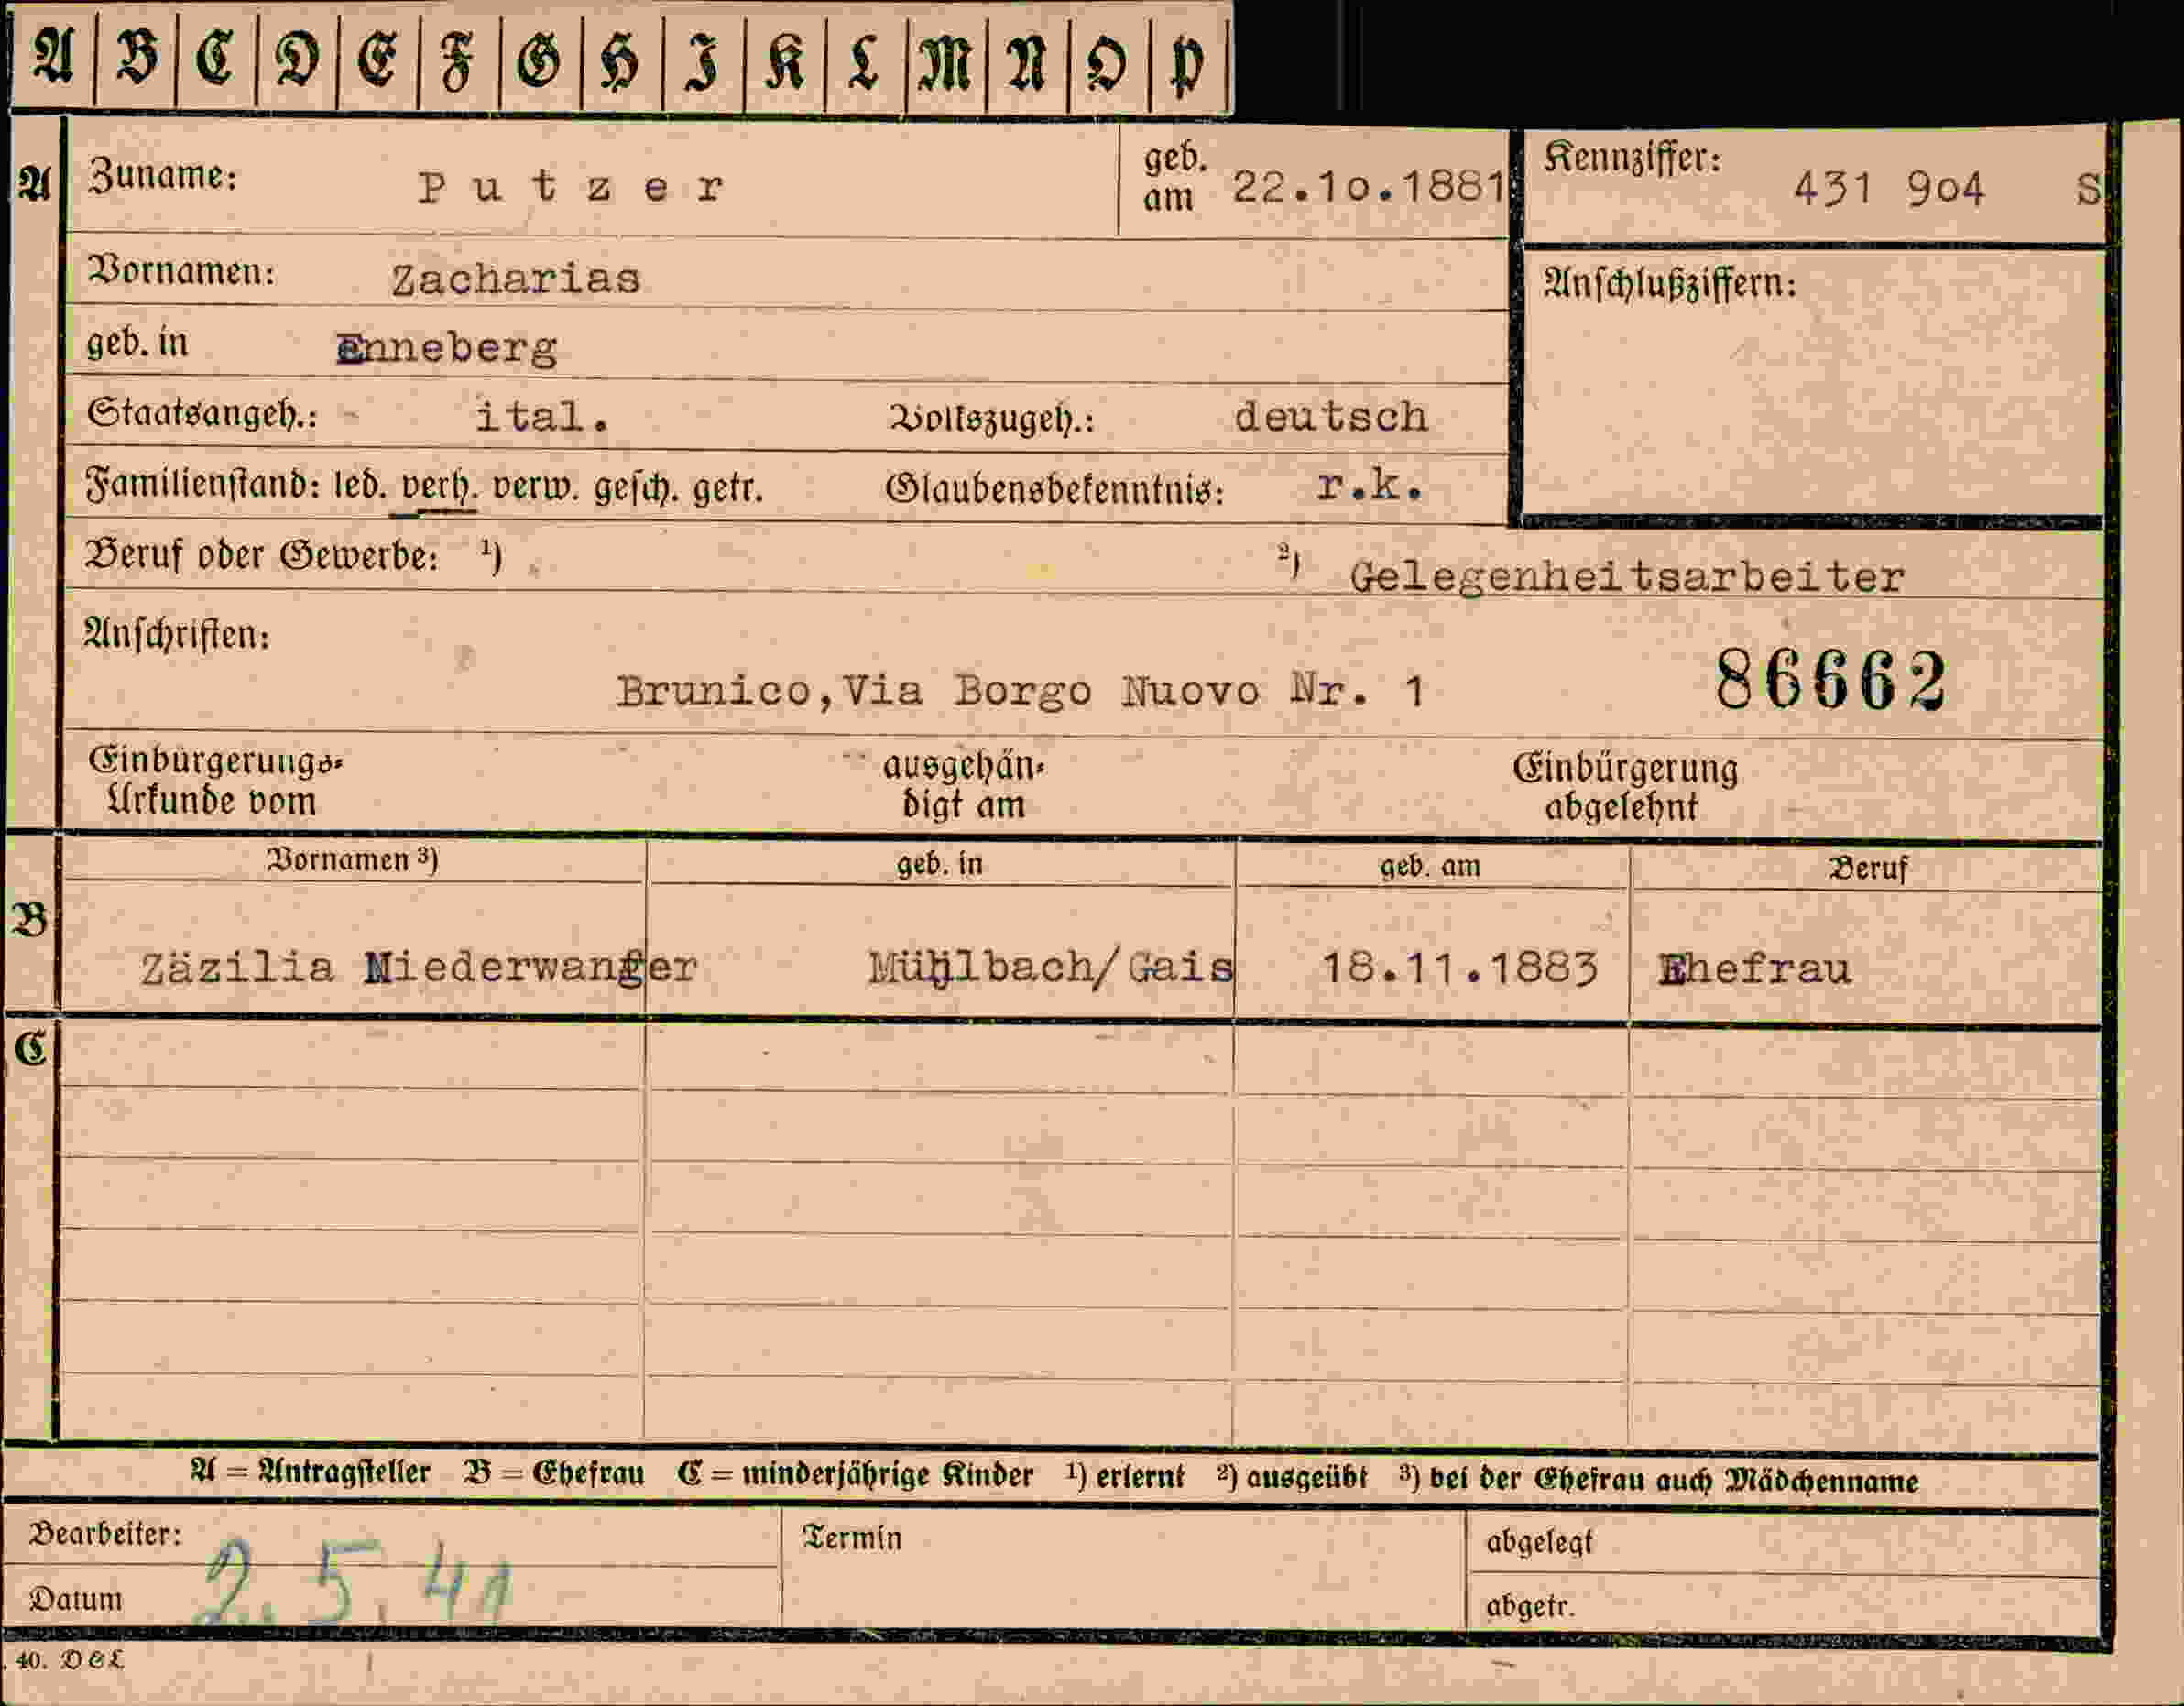 A B C D E F G H I K L M N O P
A Zuname: Putzer geb. am 22.10.1881 Kennziffer: 431 904 S
Vornamen: Zacharias Anschlußziffern:
geb. in Enneberg
Staatsangeh.: ital. Volkszugeh.: deutsch
Familienstand: led. verh. verw. gesch. getr. Glaubensbekenntnis: r.k.
Beruf oder Gewerbe: ¹) ²) Gelegenheitsarbeiter
Anschriften:
Brunico,Via Borgo Nuovo Nr. 1 86662
Einbürgerungs- ausgehän- Einbürgerung
Urkunde vom digt am abgelehnt
Vornamen ³) geb. in geb. am Beruf
B
Zäzilia Niederwanger Mühlbach/Gais 18.11.1883 Ehefrau
C
A = Antragsteller B = Ehefrau C = minderjährige Kinder ¹) erlernt ²) ausgeübt ³) bei der Ehefrau auch Mädchenname
Bearbeiter: Termin abgelegt
Datum 2.5.41 abgetr.
40. DEL